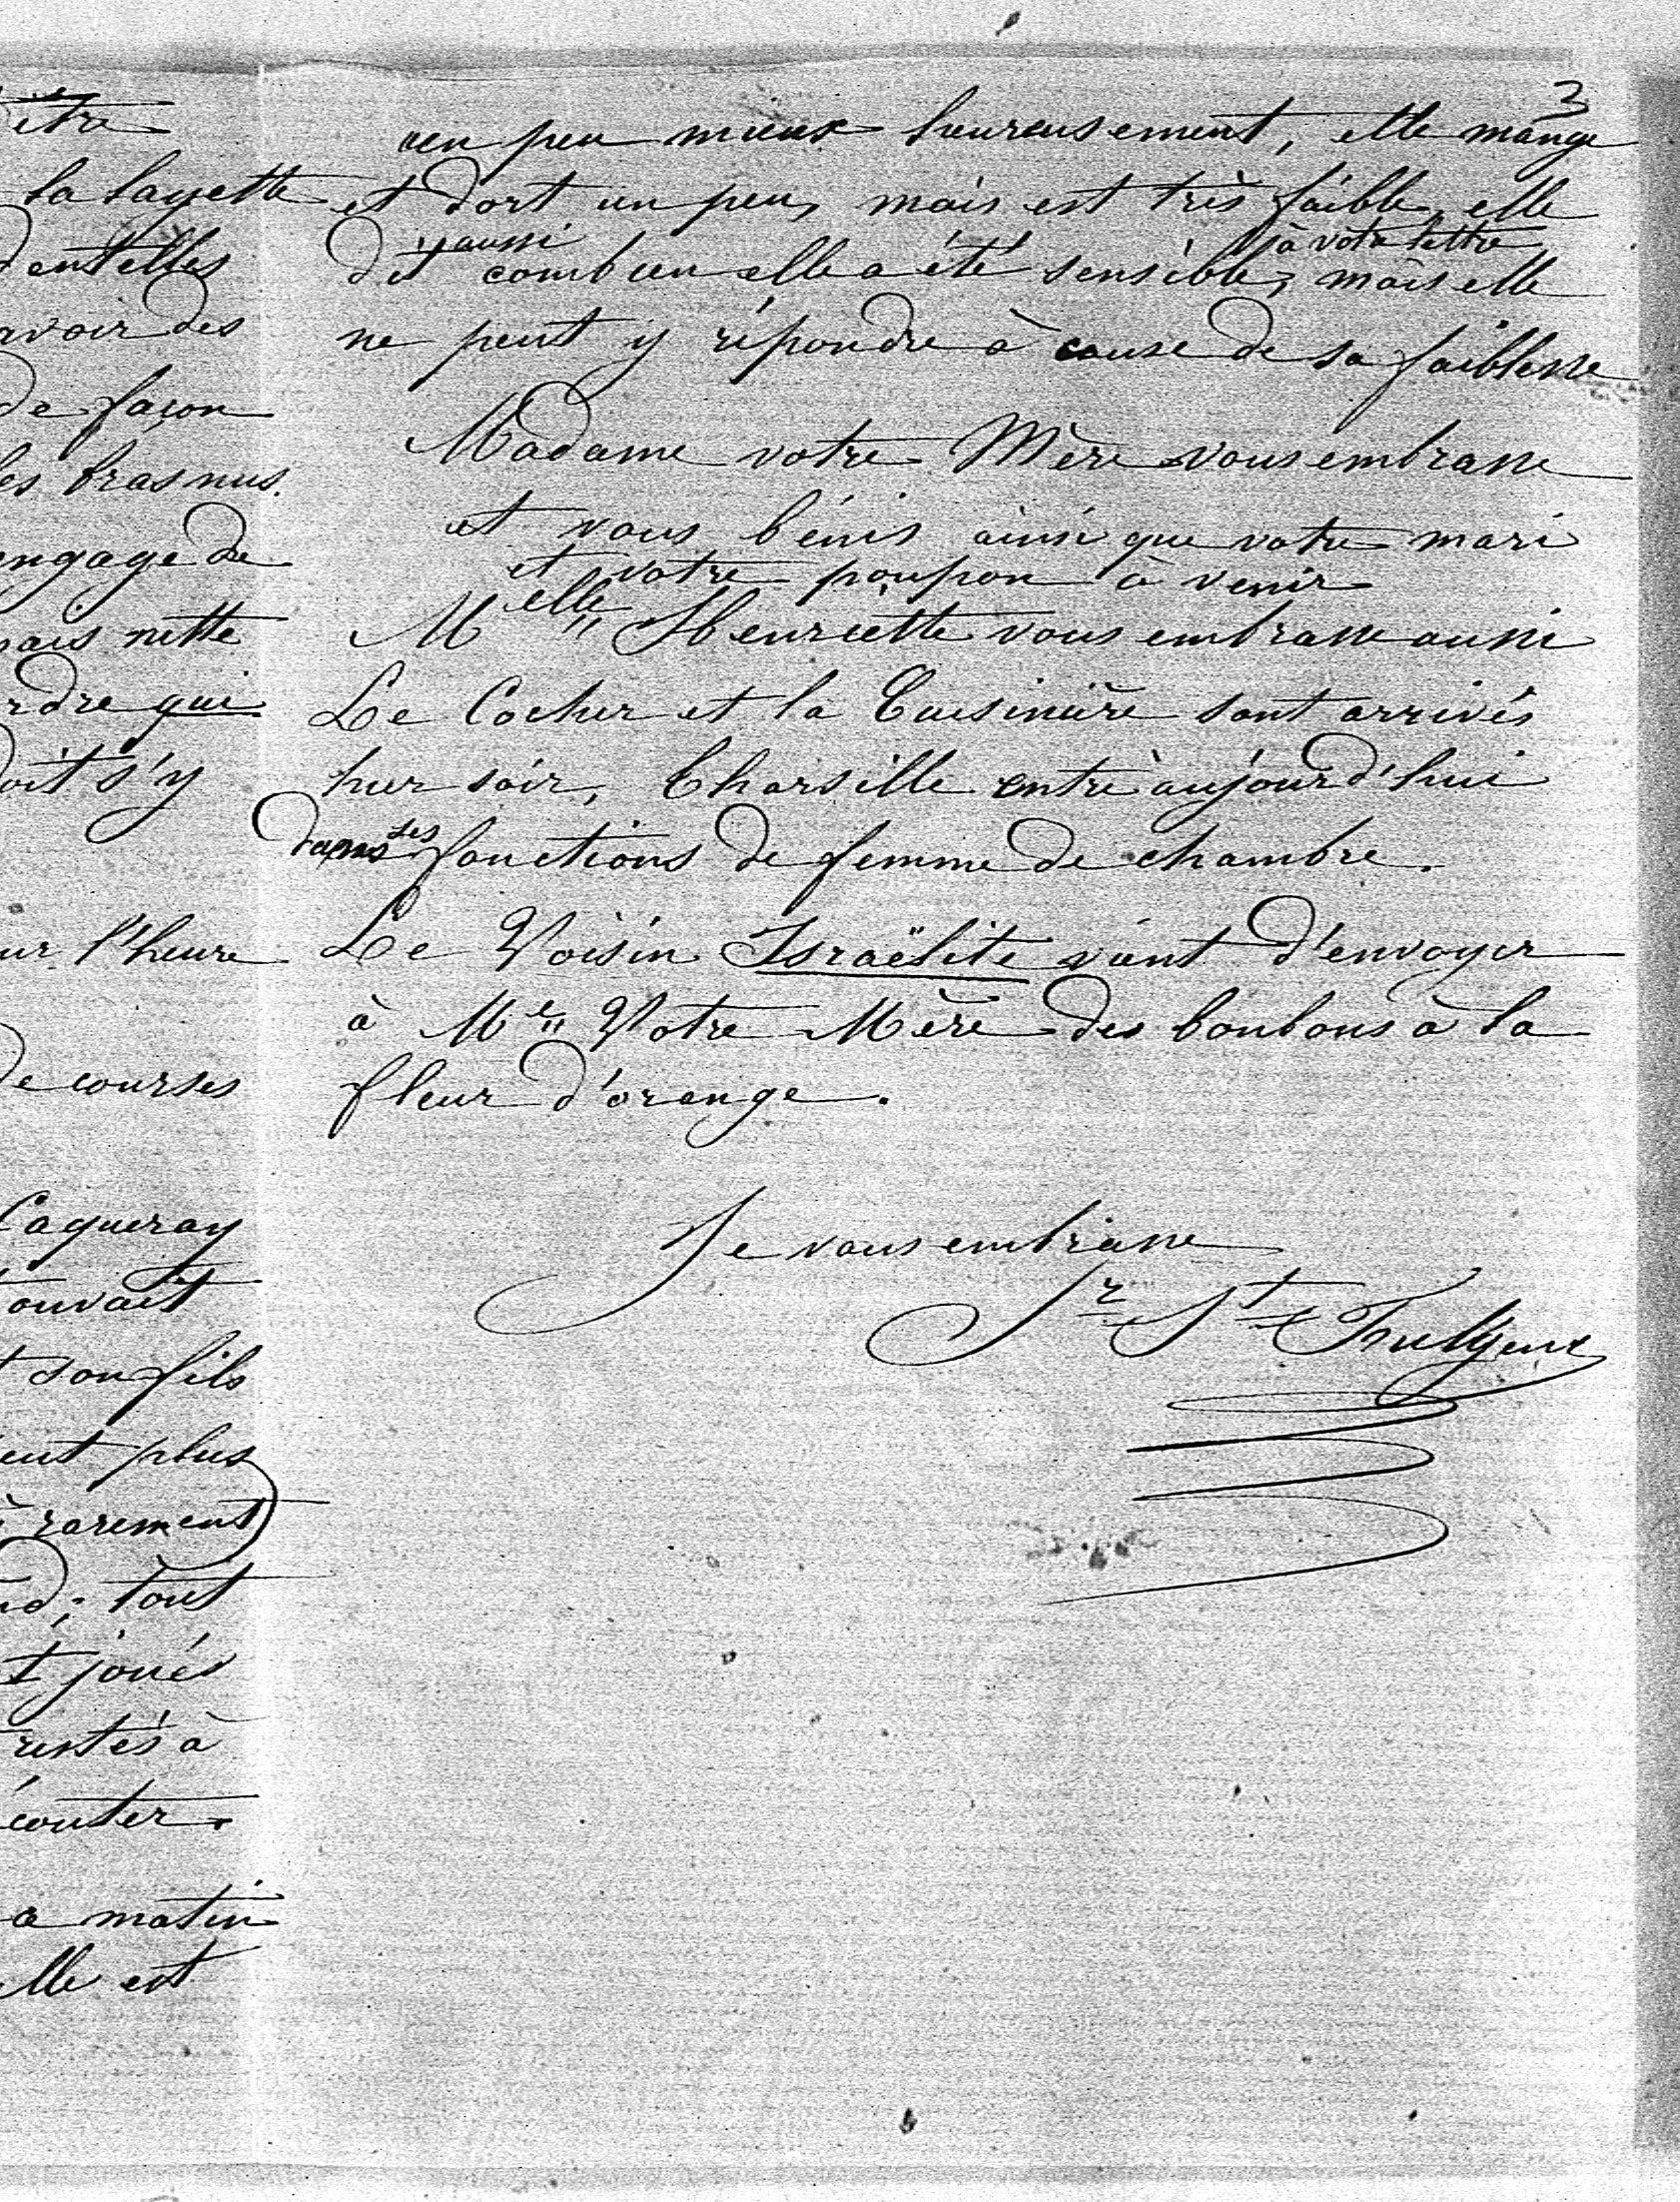 être
la layette
dentelles
avoir des
de façon
les bras nus.
engage de
mais nette
rdre qui
doit s'y
ur l'heure
de courses
Caqueray
ouvait
t son fils
ent plus
rarement)
nd; tout
t joués
restés à
écouter.
a matin
elle est
3
un peu mieux heureusement, elle mange
et dort un peu, mais est très faible, elle
dit aussi combien elle a été sensible à votre lettre, mais elle
ne peut y répondre à cause de sa faiblesse
Madame votre Mère vous embrasse
et vous bénis ainsi que votre mari
et votre poupon à venir
Melle Henriette vous embrasse aussi
Le Cocher et la Cuisinière sont arrivés
hier soir, Tharsille entre aujourd'hui
dans ses fonctions de femme de chambre.
Le Voisin Israëlite vient d'envoyer
à Me Votre Mère des bonbons à la
fleur d'orange.
Je vous embrasse
Sr St Fulgent